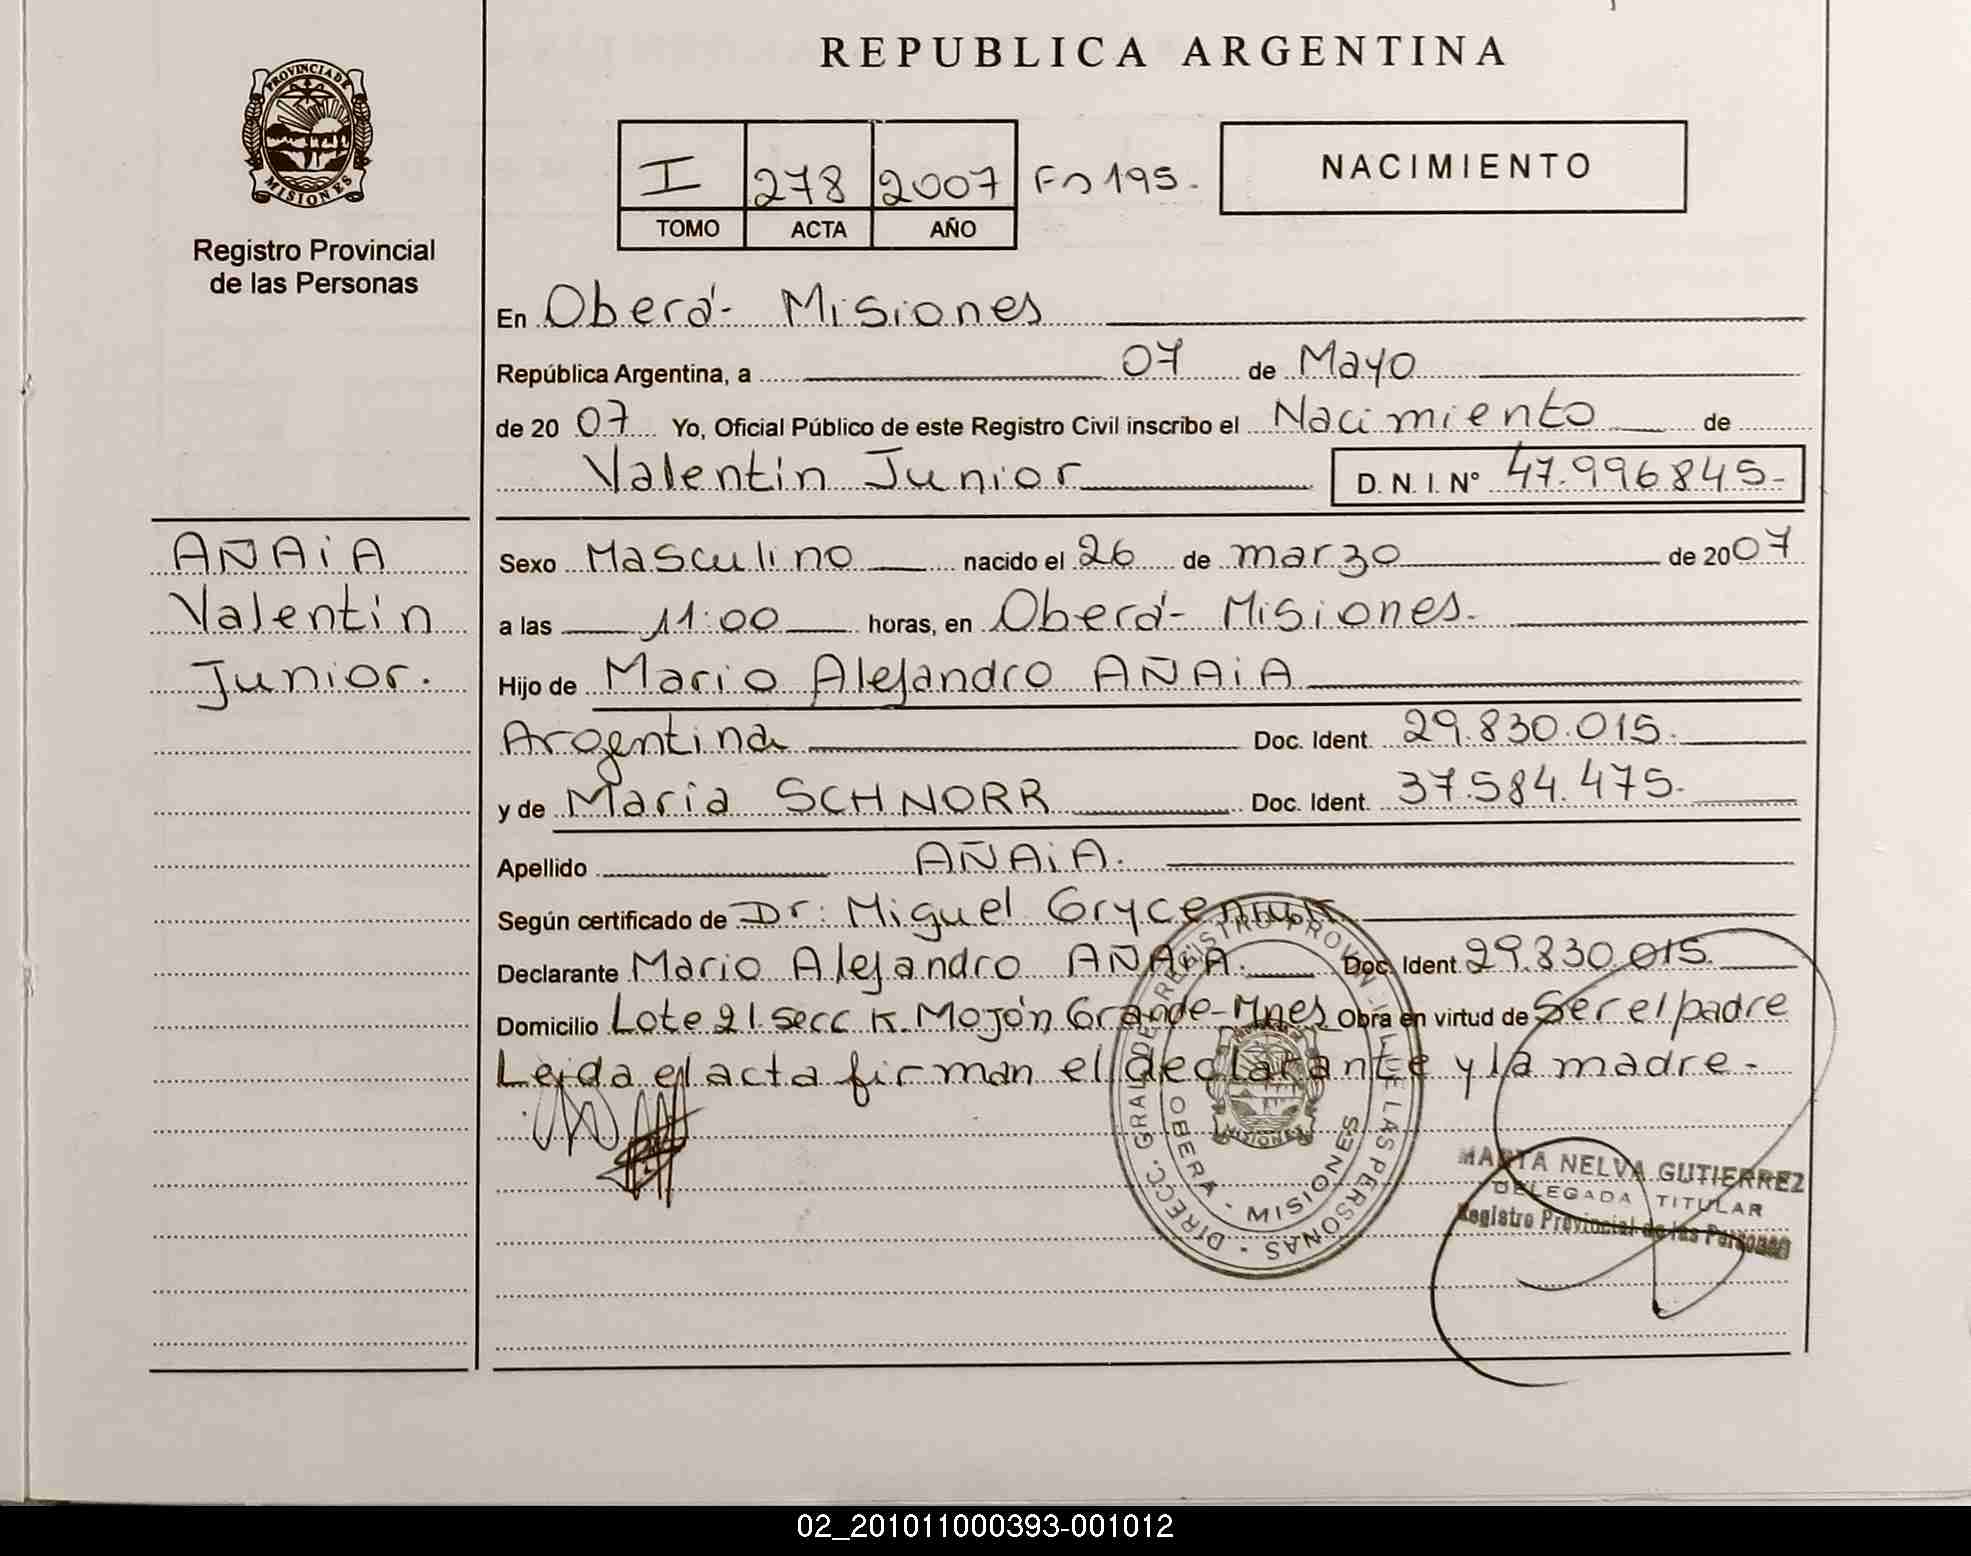 REPUBLICA ARGENTINA
PROVINCIA DE MISIONES
Registro Provincial
de las Personas
I 278 2007 Fo 195.
TOMO ACTA AÑO
NACIMIENTO
En Oberá - Misiones
República Argentina, a 07 de Mayo
de 20 07 Yo, Oficial Público de este Registro Civil inscribo el Nacimiento de
Valentin Junior D. N. I. N° 47.996845-
AÑAiA
Valentin
Junior.
Sexo Masculino nacido el 26 de marzo de 20 07
a las 11:00 horas, en Oberá - Misiones.
Hijo de Mario Alejandro AÑAiA
Argentina Doc. Ident. 29.830.015.
y de Maria SCHNORR Doc. Ident. 37.584.475.
Apellido AÑAiA.
Según certificado de Dr: Miguel Gryceniuk
Declarante Mario Alejandro AÑAiA. Doc. Ident. 29.830.015.
Domicilio Lote 21. Secc K. Mojón Grande - Mnes Obra en virtud de Ser el padre
Leida el acta firman el declarante y la madre -
DIRECC. GRAL DE REGISTRO PROVINCIAL DE LAS PERSONAS
OBERA - MISIONES
MISIONES
MARTA NELVA GUTIERREZ
DELEGADA TITULAR
Registro Provincial de las Personas
02_201011000393-001012